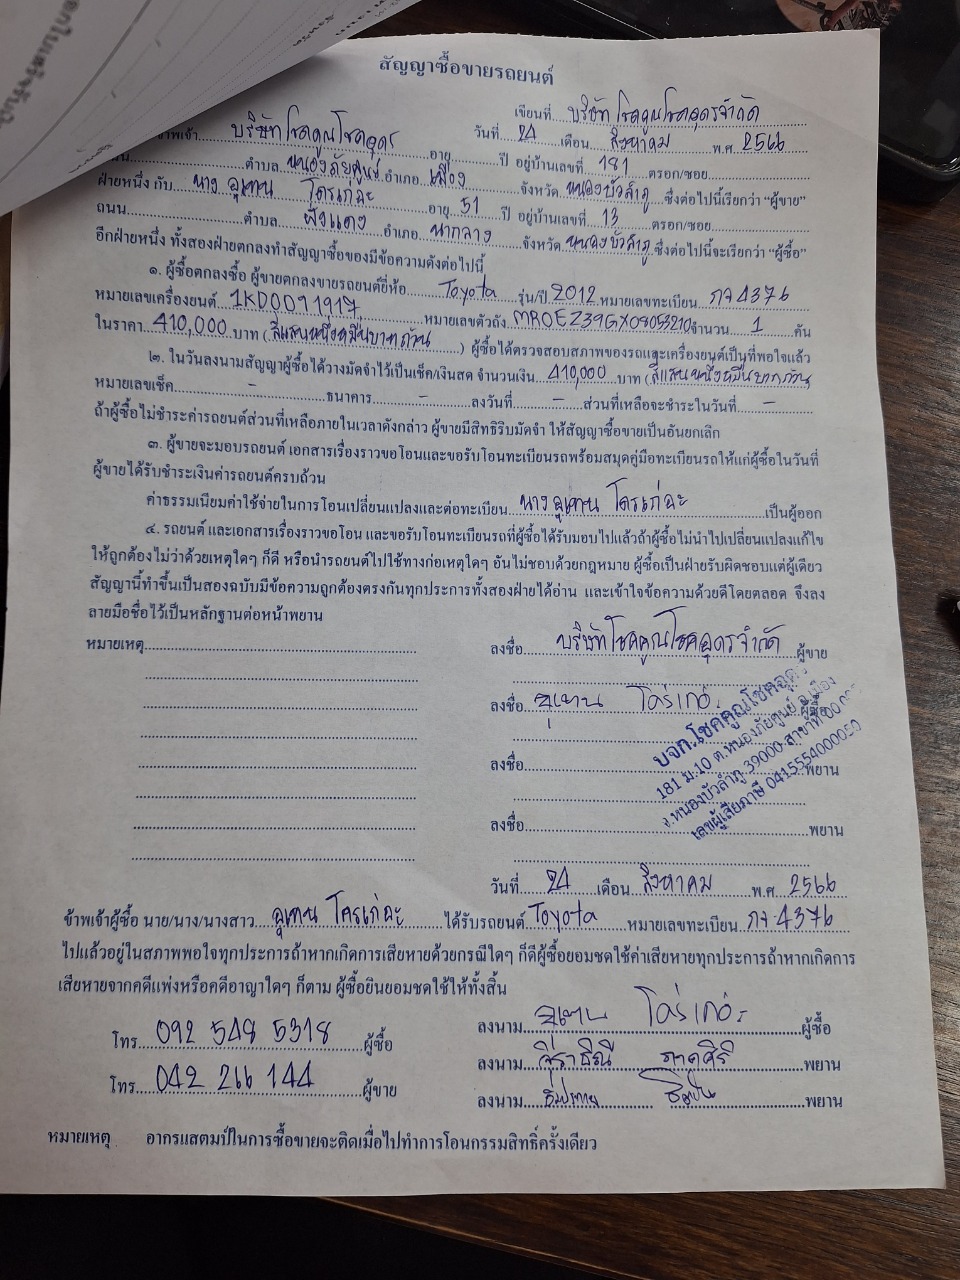 สัญญาซื้อขายรถยนต์
เขียนที่ บริษัท โชคคูณโชคอุดรจำกัด
วันที่ 24 เดือน สิงหาคม พ.ศ. 2566
ข้าพเจ้า บริษัท โชคคูณโชคอุดร อายุ ปี อยู่บ้านเลขที่ 181 ตรอก/ซอย
ตำบล หนองภัยศูนย์ อำเภอ เมือง จังหวัด หนองบัวลำภู ซึ่งต่อไปนี้เรียกว่า "ผู้ขาย"
ฝ่ายหนึ่ง กับ นาง อุเทน โครเก่อะ อายุ 51 ปี อยู่บ้านเลขที่ 13 ตรอก/ซอย
ถนน ตำบล ฝั่งแดง อำเภอ นากลาง จังหวัด หนองบัวลำภู ซึ่งต่อไปนี้จะเรียกว่า "ผู้ซื้อ"
อีกฝ่ายหนึ่ง ทั้งสองฝ่ายตกลงทำสัญญาซื้อของมีข้อความดังต่อไปนี้
๑. ผู้ซื้อตกลงซื้อ ผู้ขายตกลงขายรถยนต์ยี่ห้อ Toyota รุ่น/ปี 2012 หมายเลขทะเบียน กจ 4376
หมายเลขเครื่องยนต์ 1KD0091917 หมายเลขตัวถัง MROEZ39GX08053210 จำนวน 1 คัน
ในราคา 410,000 บาท (สี่แสนหนึ่งหมื่นบาทถ้วน) ผู้ซื้อได้ตรวจสอบสภาพของรถและเครื่องยนต์เป็นที่พอใจแล้ว
๒. ในวันลงนามสัญญาผู้ซื้อได้วางมัดจำไว้เป็นเช็ค/เงินสด จำนวนเงิน 410,000 บาท (สี่แสนหนึ่งหมื่นบาทถ้วน
หมายเลขเช็ค - ธนาคาร - ลงวันที่ - ส่วนที่เหลือจะชำระในวันที่ -
ถ้าผู้ซื้อไม่ชำระค่ารถยนต์ส่วนที่เหลือภายในเวลาดังกล่าว ผู้ขายมีสิทธิริบมัดจำ ให้สัญญาซื้อขายเป็นอันยกเลิก
๓. ผู้ขายจะมอบรถยนต์ เอกสารเรื่องราวขอโอนและขอรับโอนทะเบียนรถพร้อมสมุดคู่มือทะเบียนรถให้แก่ผู้ซื้อในวันที่
ผู้ขายได้รับชำระเงินค่ารถยนต์ครบถ้วน
ค่าธรรมเนียมค่าใช้จ่ายในการโอนเปลี่ยนแปลงและต่อทะเบียน นาง อุเทน โครเก่อะ เป็นผู้ออก
๔. รถยนต์ และเอกสารเรื่องราวขอโอน และขอรับโอนทะเบียนรถที่ผู้ซื้อได้รับมอบไปแล้วถ้าผู้ซื้อไม่นำไปเปลี่ยนแปลงแก้ไข
ให้ถูกต้องไม่ว่าด้วยเหตุใดๆ ก็ดี หรือนำรถยนต์ไปใช้ทางก่อเหตุใดๆ อันไม่ชอบด้วยกฎหมาย ผู้ซื้อเป็นฝ่ายรับผิดชอบแต่ผู้เดียว
สัญญานี้ทำขึ้นเป็นสองฉบับมีข้อความถูกต้องตรงกันทุกประการทั้งสองฝ่ายได้อ่าน และเข้าใจข้อความด้วยดีโดยตลอด จึงลง
ลายมือชื่อไว้เป็นหลักฐานต่อหน้าพยาน
หมายเหตุ ลงชื่อ บริษัท โชคคูณโชคอุดรจำกัด ผู้ขาย
ลงชื่อ อุเทน โคร่เก่อะ ผู้ซื้อ
ลงชื่อ พยาน
ลงชื่อ พยาน
บจก.โชคคูณโชคอุดร
181 ม.10 ต.หนองภัยศูนย์ อ.เมือง
จ.หนองบัวลำภู 39000 สาขาที่
เลขผู้เสียภาษี
วันที่ 24 เดือน สิงหาคม พ.ศ. 2566
ข้าพเจ้าผู้ซื้อ นาย/นาง/นางสาว อุเทน โครเก่อะ ได้รับรถยนต์ Toyota หมายเลขทะเบียน กจ 4376
ไปแล้วอยู่ในสภาพพอใจทุกประการถ้าหากเกิดการเสียหายด้วยกรณีใดๆ ก็ดีผู้ซื้อยอมชดใช้ค่าเสียหายทุกประการถ้าหากเกิดการ
เสียหายจากคดีแพ่งหรือคดีอาญาใดๆ ก็ตาม ผู้ซื้อยินยอมชดใช้ให้ทั้งสิ้น
โทร 092 548 5318 ผู้ซื้อ ลงนาม อุเทน โคร่เก่อะ ผู้ซื้อ
โทร 042 266 144 ผู้ขาย ลงนาม พยาน
ลงนาม พยาน
หมายเหตุ อากรแสตมป์ในการซื้อขายจะติดเมื่อไปทำการโอนกรรมสิทธิ์ครั้งเดียว